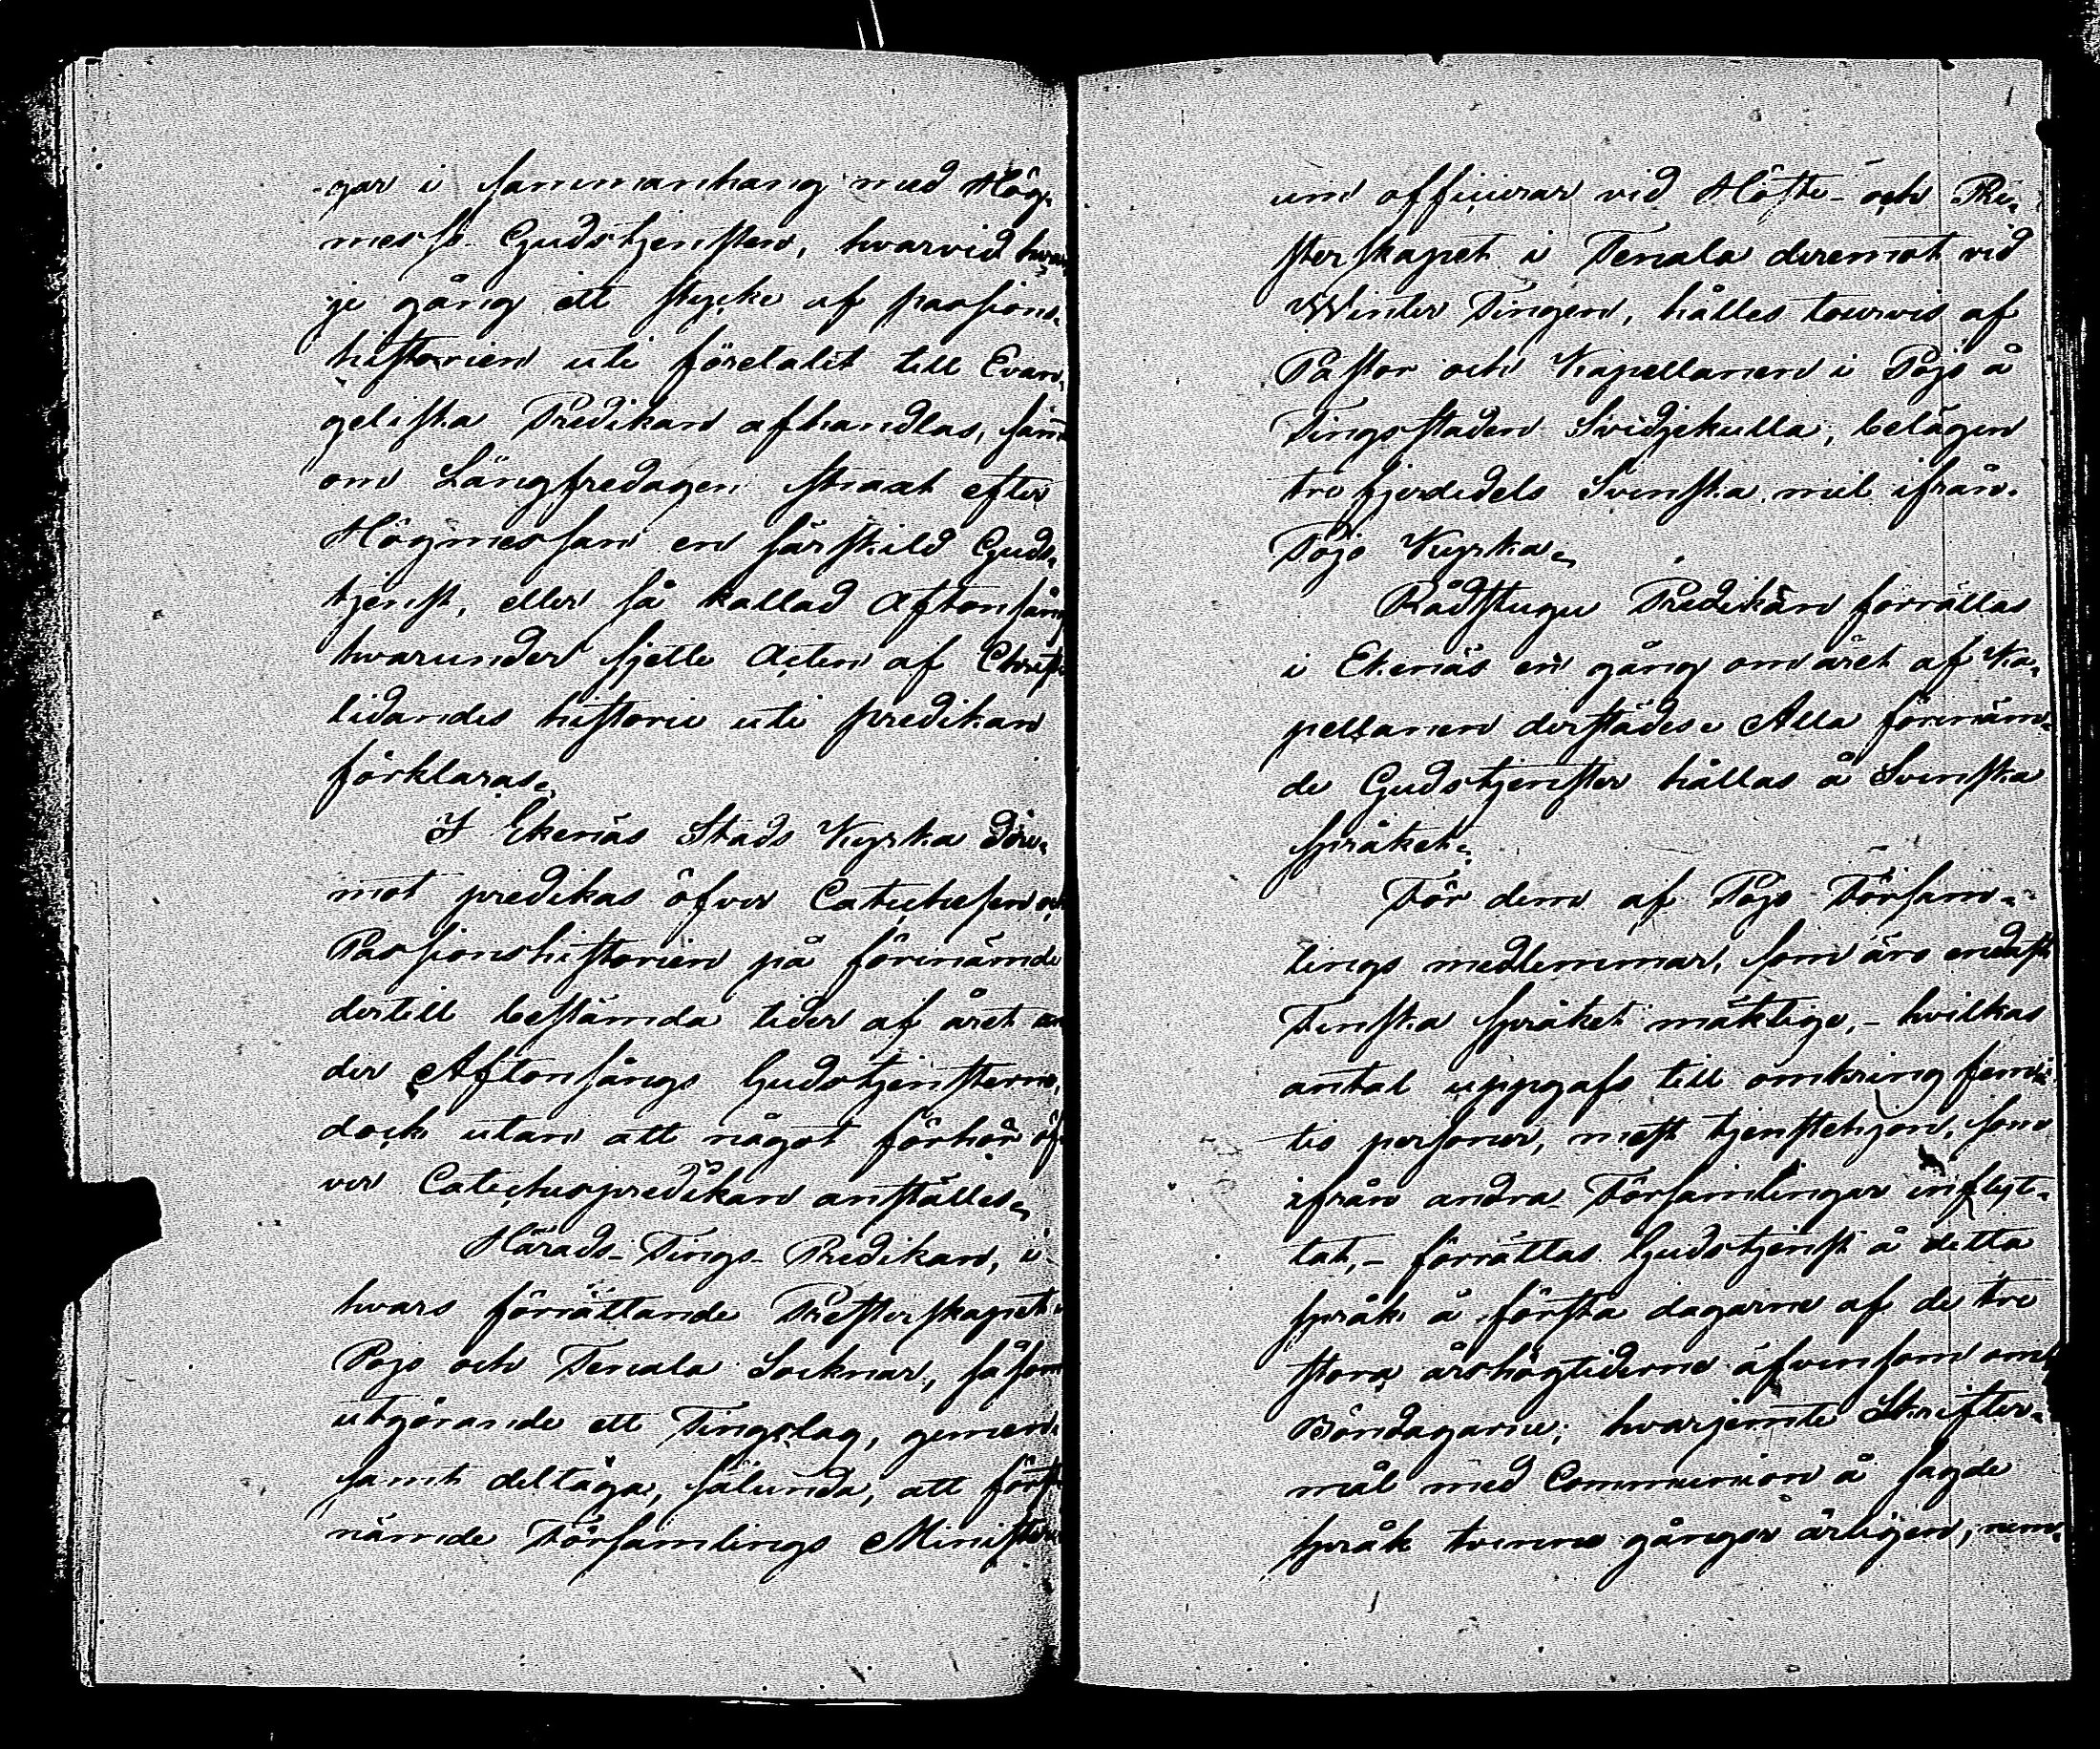 gar i sammanhang med Hög-
messo Gudstjensten, hvarvid hvar
je gång ett stycke af passions-
historien uti företalet till Evan-
geliska Predikan afhandlas, samt
om Långfredagen straxt efter
Högmessan en särskild Guds-
tjenst, eller så kallad Aftonsång
hvarunder sjelle Acten af Christi
lidandes historie uti predikan
förklaras.
I Ekenäs Stads Kyrka dere-
mot predikas öfver Catechesen och
Passionshistorien på förenämde
dertill bestämda tider af året un
der Aftonsångs Gudstjensterne,
dock utan att något förhör öf-
ver Catechespredikan anställes.
Härads-Tings-Predikan, i
hvars förrättande Presterskapet i
Pojo och Tenala Socknar, såsom
utgörande ett Tingslag, gemen-
samt deltaga, sålunda, att först
nämde Församlings Ministeri
um officierar vid Höste- och Pre-
sterskapet i Tenala deremot vid
Winter Tingen, hålles tourvis af
Pastor och Kapellanen i Pojo å
Tingsstaden Svidjekulla, belägen
tre fjerdedels Svenska mil ifrån
Pojo Kyrka.
Rådstugu Predikan förrättas
i Ekenäs en gång om året af Ka-
pellanen derstädes. Alla förenäm-
de Gudstjenster hållas å Svenska
språket.
För dem af Pojo Försam-
lings medlemmar, som äro endast
Finska språket mäktige, - hvilkas
antal uppgafs till omkring femti
tio personer, mest tjenstehjon, som
ifrån andra Församlingar inflyt-
tat, - förrättas Gudstjenst å detta
språk å första dagarne af de tre
stora årshögtiderne äfvensom om
Böndagarne; hvarjemte Skrifter-
mål med Communion å sagde
språk tvenne gånger årligen, nem-